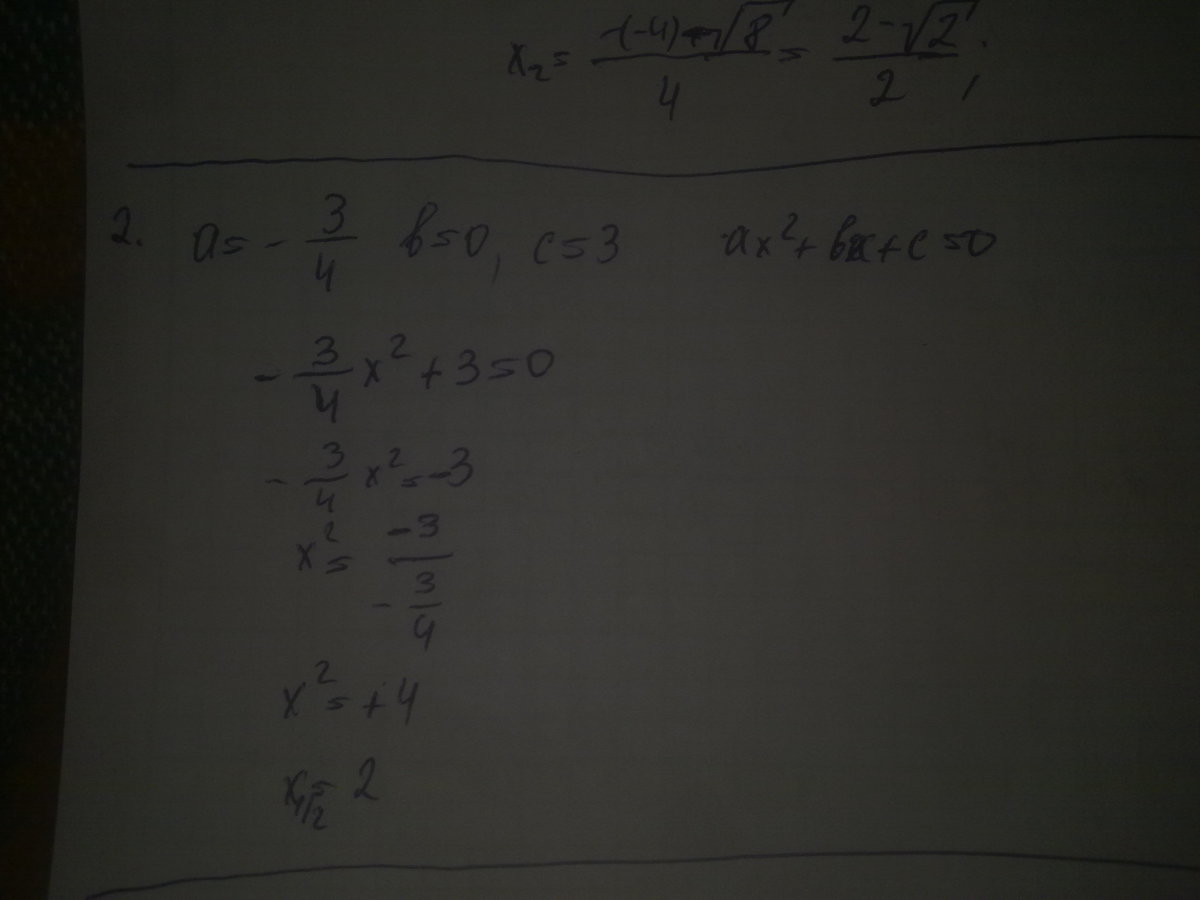 x₂ = (-(-4)-√8)/4 = (2-√2)/2;
2. a = -3/4 b=0, c=3 ax²+bx+c=0
-3/4 x² + 3 = 0
-3/4 x² = -3
x² = -3/(-3/4)
x² = +4
x₁,₂ = 2